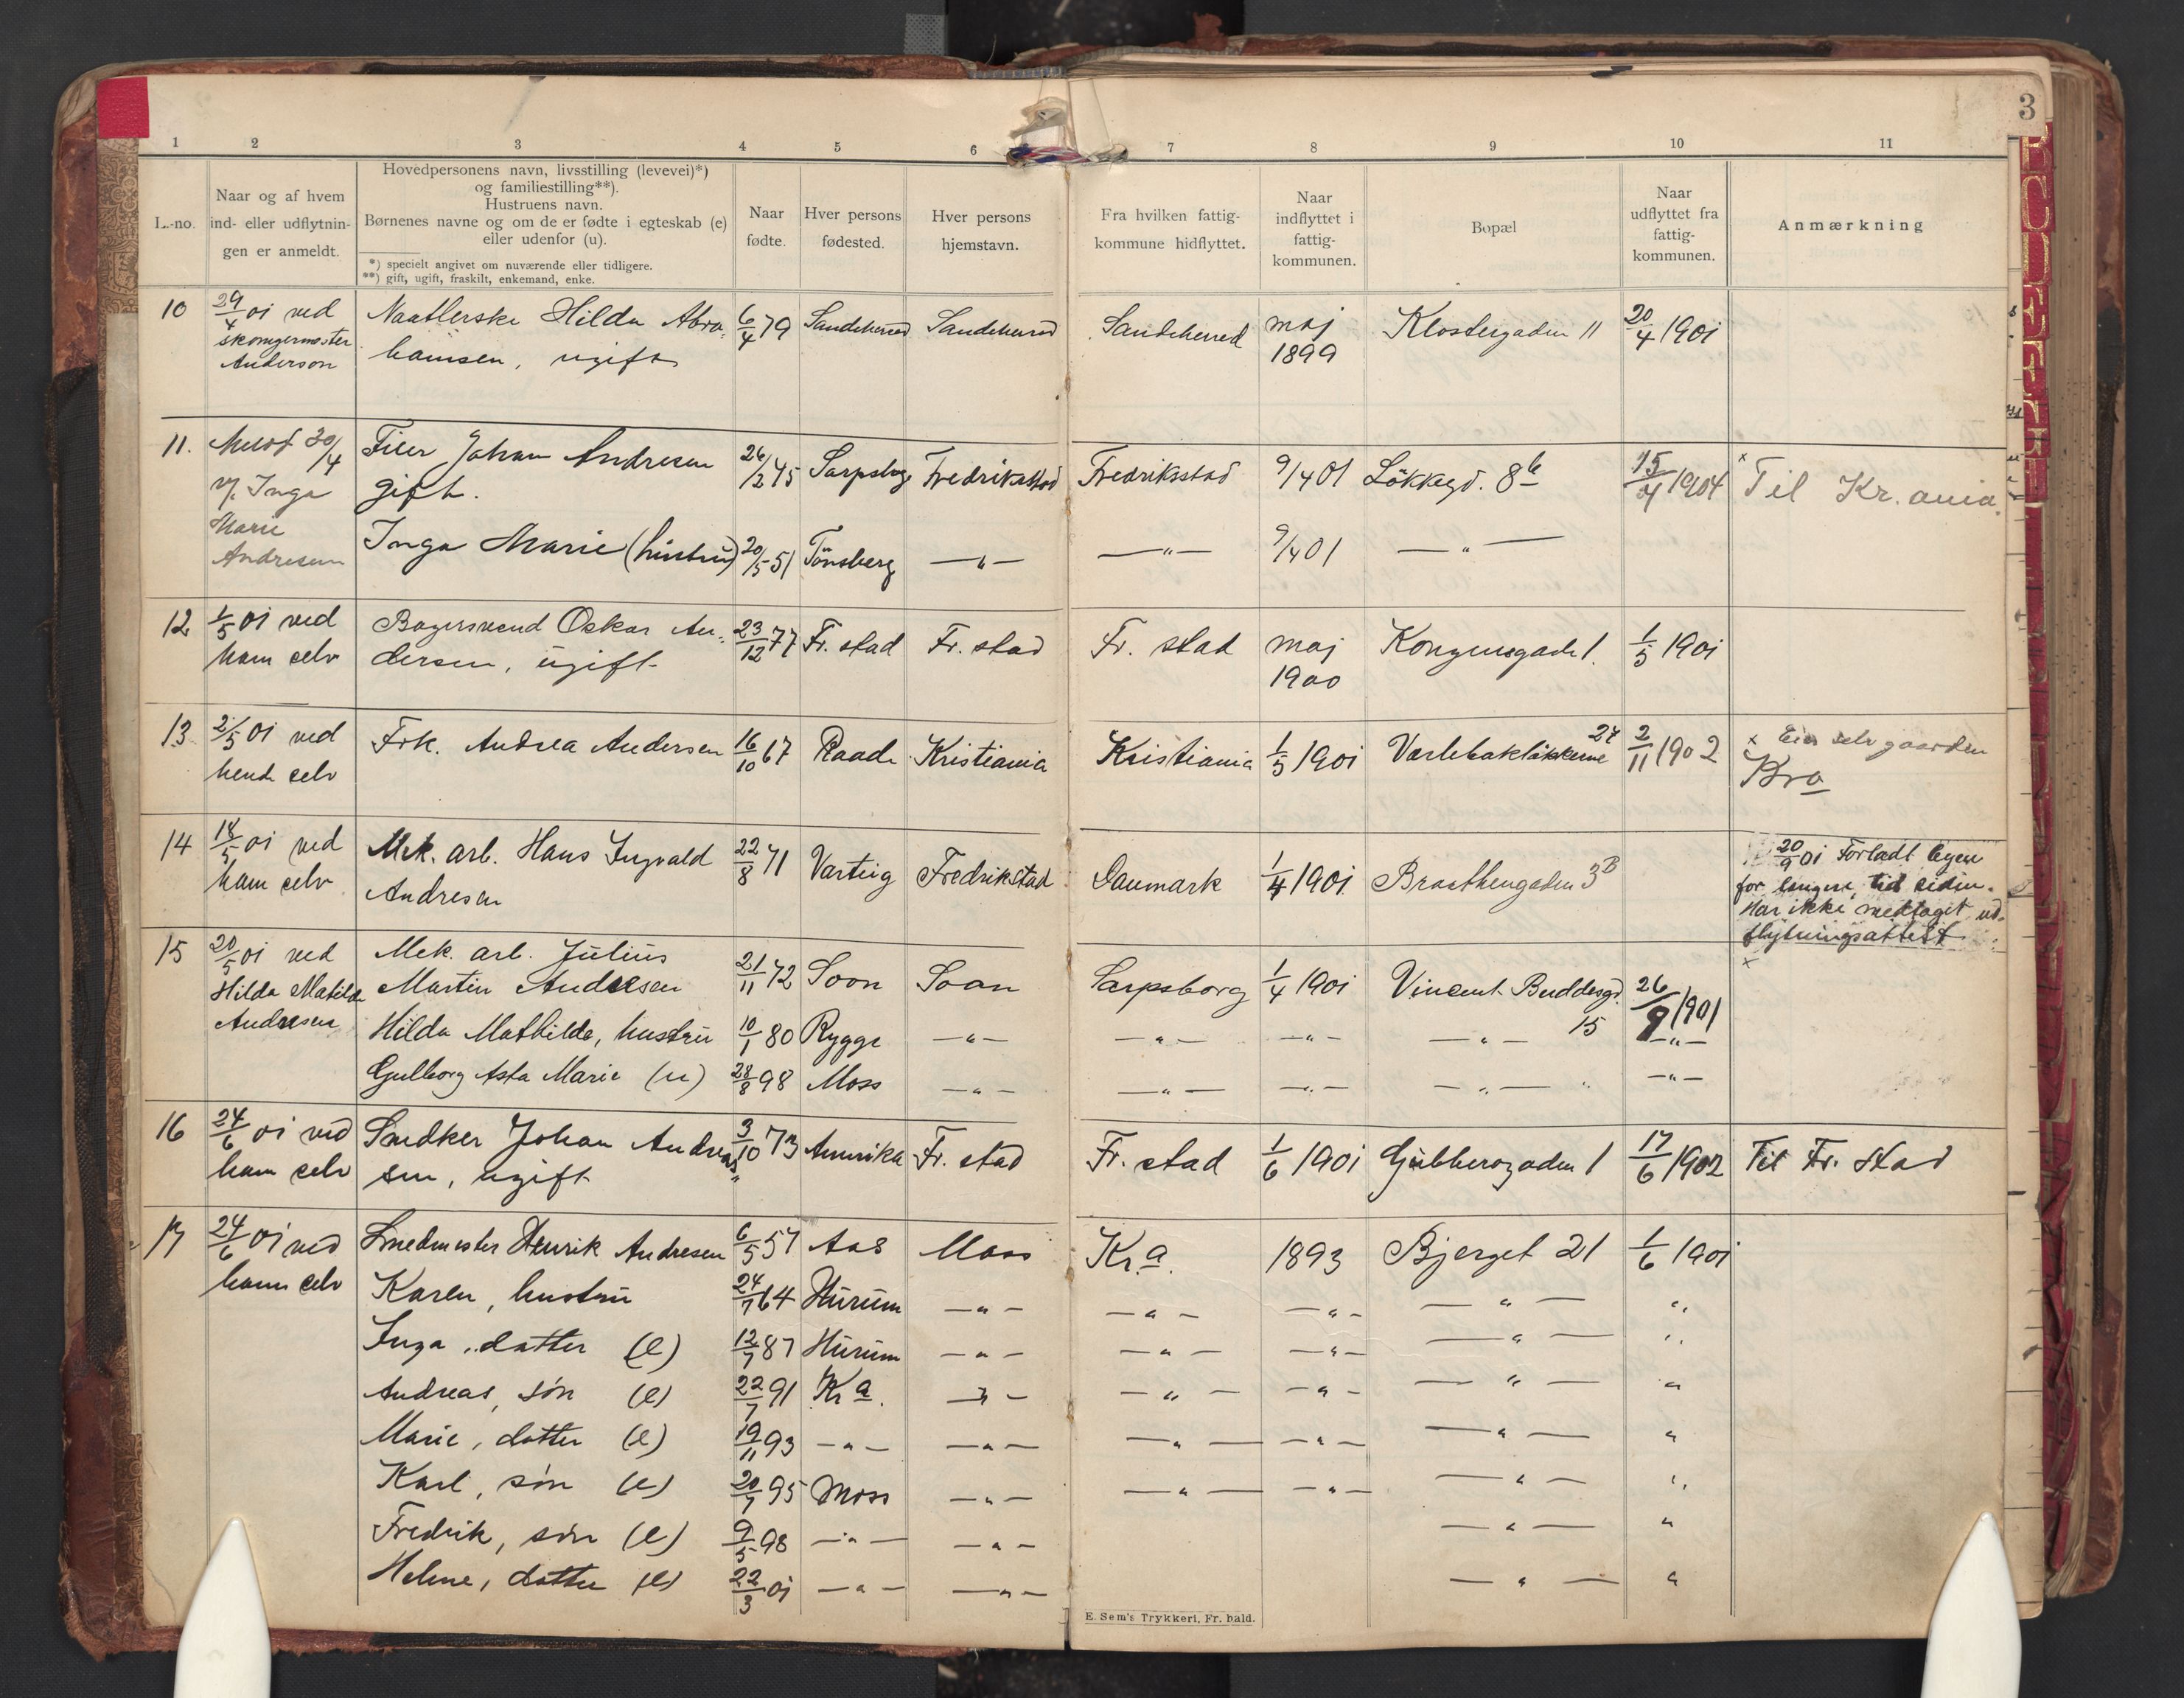 3
1 2 3 4 5 6 7 8 9 10 11
L.-no.
Naar og af hvem
ind- eller udflytnin-
gen er anmeldt.
Hovedpersonens navn, livsstilling (levevei)*)
og familiestilling**).
Hustruens navn.
Børnenes navne og om de er fødte i egteskab (e)
eller udenfor (u).
*) specielt angivet om nuværende eller tidligere.
**) gift, ugift, fraskilt, enkemand, enke.
Naar
fødte.
Hver persons
fødested.
Hver persons
hjemstavn.
Fra hvilken fattig-
kommune hidflyttet.
Naar
indflyttet i
fattig-
kommunen.
Bopæl
Naar
udflyttet fra
fattig-
kommunen.
Anmærkning
10 29/4 01 ved Naatlerske Hilda Abra- 6/4 79 Sandeherred Sandeherred Sandeherred maj Klostergaden 11 20/4 1901
Anderson hamsen, ugift 1899
11. 30/4 Filer Johan Andresen 26/2 45 Sarpsbg Fredriksstad Fredriksstad 9/4 01 Løkkegd. 8b 15/4 1904 x Til Kr.ania.
v/ Inga gift.
Marie Inga Marie (hustru) 20/5 51 Tønsberg —"— —"— 9/4 01 —"—
Andresen
12 1/5 01 ved Bagersvend Oskar An- 23/12 77 Fr. stad Fr. stad Fr. stad maj Kongensgade 1. 1/5 1901
ham selv dersen, ugift 1900
13 2/5 01 ved Frk. Andrea Andersen 16/10 67 Raade Kristiania Kristiania 1/5 1901 Varlebakløkkerne 27 2/11 1902 x Eier selv gaarden
hende selv Kra
14 18/5 01 ved Mek. arb. Hans Ingvald 22/8 71 Varteig Fredrikstad Danmark 1/4 1901 Braathengaden 3B 20/9 01 Forladt byen
ham selv Andresen for længere tid siden.
Har ikke medtaget ud-
flytningsattest
x
15 20/5 01 ved Mek. arb. Julius
Hilda Matilde Martin Andresen 21/11 72 Soon Soon Sarpsborg 1/4 1901 Vincent Buddesgd. 15 26/9 1901
Andresen Hilda Mathilde, hustru 10/1 80 Rygge —"— —"— —"— —"— —"—
Gulborg Asta Marie (u) 28/8 98 Moss —"— —"— —"— —"— —"—
16 24/6 01 ved Snedker Johan Andrea- 3/10 73 Amerika Fr. stad Fr. stad 1/6 1901 Gubberogaden 1 17/6 1902 Til Fr. stad
ham selv sen, ugift
17 24/6 01 ved Smedmester Henrik Andresen 6/5 57 Aas Moss Kr.a. 1893 Bjerget 21 1/6 1901
ham selv Karen, hustru 24/7 64 Hurum —"— —"— —"— —"— "
Inga, datter (e) 12/7 87 Hurum —"— —"— —"— —"— "
Andreas, søn (e) 22/7 91 Kr a. —"— —"— —"— —"— "
Marie, datter (e) 19/11 93 —"— —"— —"— —"— —"— "
Karl, søn (e) 20/7 95 Moss —"— —"— —"— —"— "
Fredrik, søn (e) 9/5 98 —"— —"— —"— "
Helene, datter (e) 22/3 01 —"— —"— —"— "
E. Sem's Trykkeri, Fr. hald.